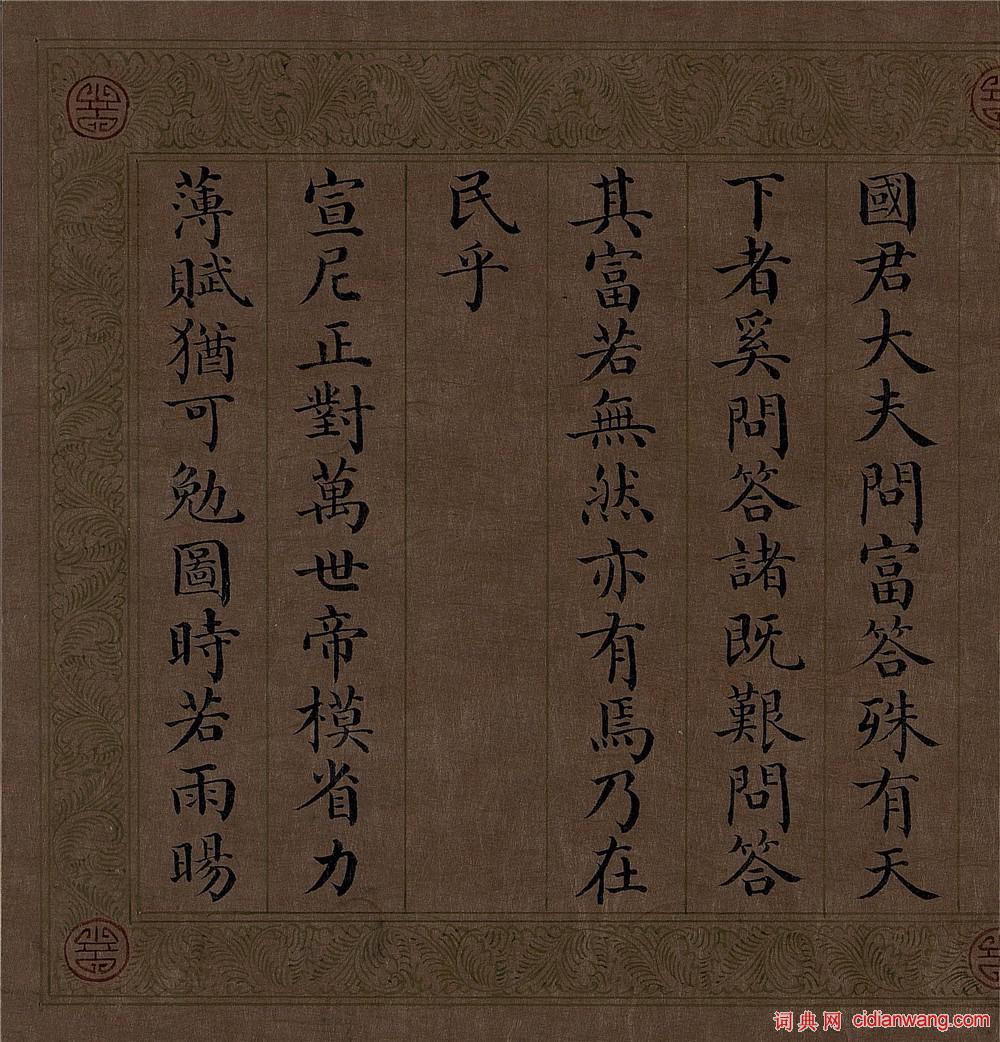 國君大夫問富答殊有天
下者奚問答諸既艱問答
其富若無然亦有焉乃在
民乎
宣尼正對萬世帝模省力
薄賦猶可勉圖時若雨暘
词典网 cidianwang.com